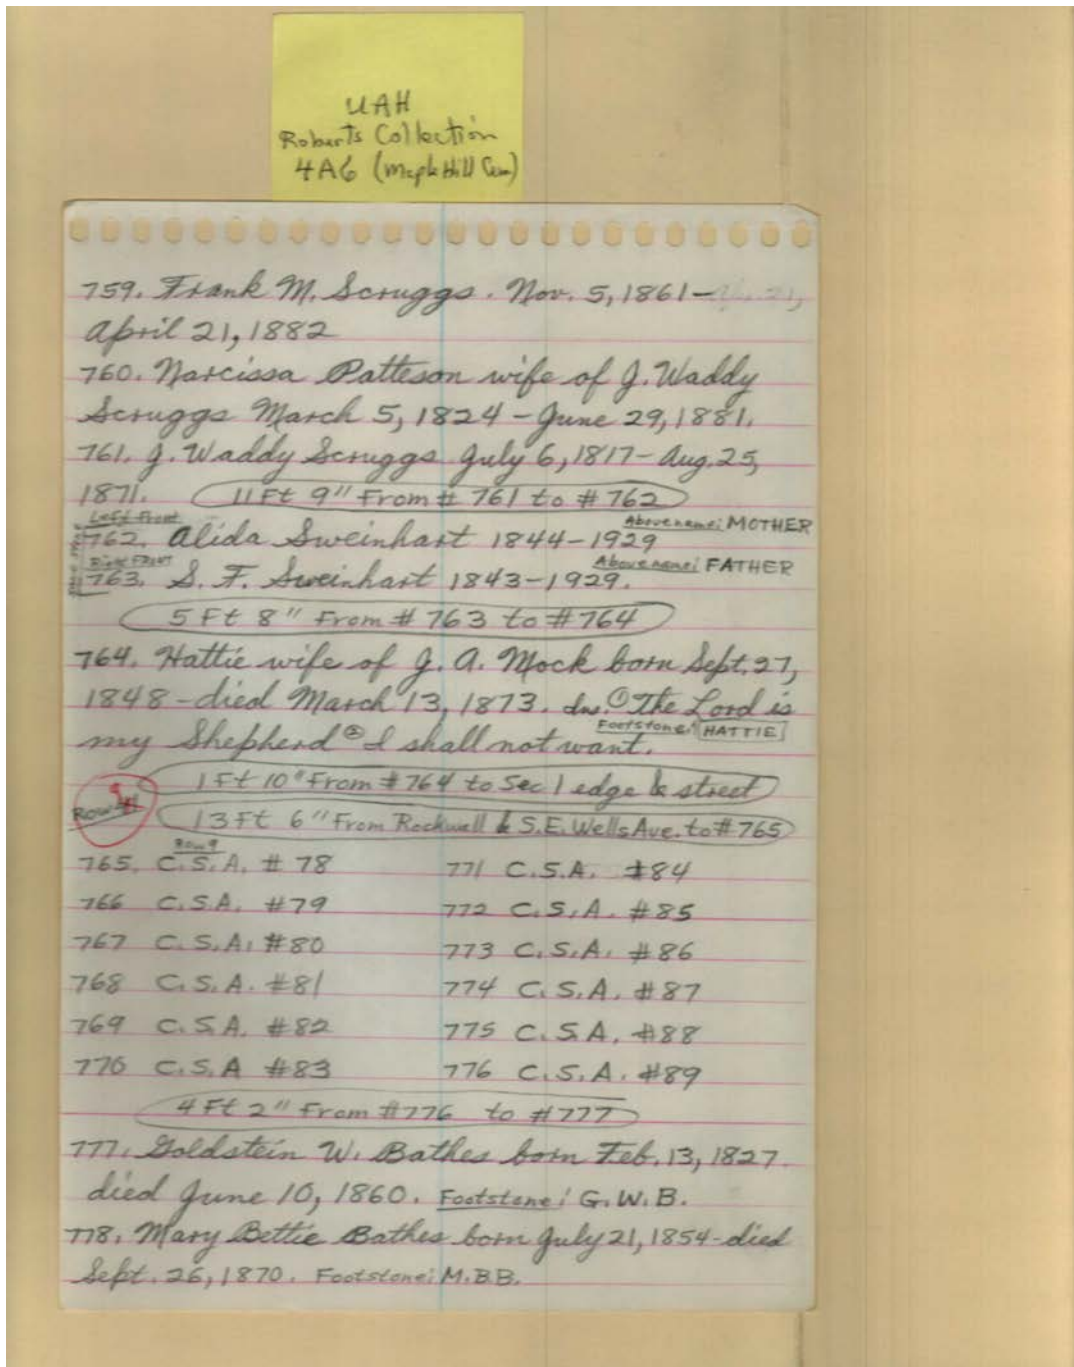 UAH
Roberts Collection
4A6 (Maple Hill Cem)
759. Frank M. Scruggs. Nov. 5, 1861-
April 21, 1882
760. Narcissa Patteson wife of J. Waddy
Scruggs March 5, 1824 - June 29, 1881.
761. J. Waddy Scruggs July 6, 1817 - Aug. 25,
1871. 11 Ft 9" From # 761 to # 762
Left Front
Above name: MOTHER
762. Alida Sweinhart 1844-1929
Right FRONT
Above name: FATHER
763. S. F. Sweinhart 1843-1929.
5 Ft 8" From # 763 to # 764
764. Hattie wife of J. A. Mock born Sept. 27,
1848 - died March 13, 1873. Ins. ① The Lord is
Footstone: HATTIE
my Shepherd ② I shall not want.
1 Ft 10" From # 764 to Sec 1 edge & street
Row
13 Ft 6" From Rockwell & S.E. Wells Ave. to # 765
Row 9
765. C.S.A. # 78 771 C.S.A. #84
766 C.S.A. #79 772 C.S.A. #85
767 C.S.A. #80 773 C.S.A. #86
768 C.S.A. #81 774 C.S.A. #87
769 C.S.A. #82 775 C.S.A. #88
770 C.S.A #83 776 C.S.A. #89
4 Ft 2" From #776 to #777
777. Goldstein W. Bathes born Feb. 13, 1827.
died June 10, 1860. Footstone: G.W.B.
778. Mary Bettie Bathes born July 21, 1854 - died
Sept. 26, 1870. Footstone: M.B.B.